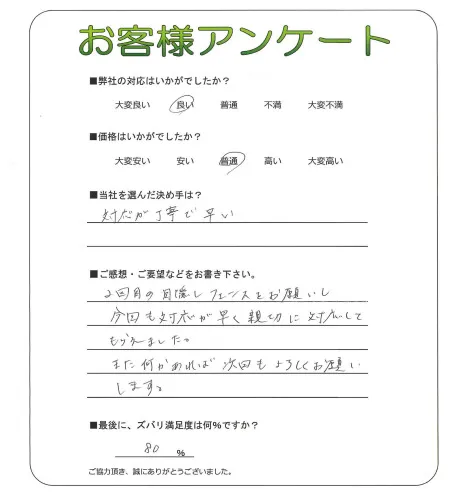 お客様アンケート
■弊社の対応はいかがでしたか？
大変良い 良い 普通 不満 大変不満
■価格はいかがでしたか？
大変安い 安い 普通 高い 大変高い
■当社を選んだ決め手は？
対応が丁寧で早い
■ご感想・ご要望などをお書き下さい。
2回目の目隠しフェンスをお願いし
今回も対応が早く親切に対応して
もらえました。
また何かあれば次回もよろしくお願い
します。
■最後に、ズバリ満足度は何%ですか？
80 %
ご協力頂き、誠にありがとうございました。